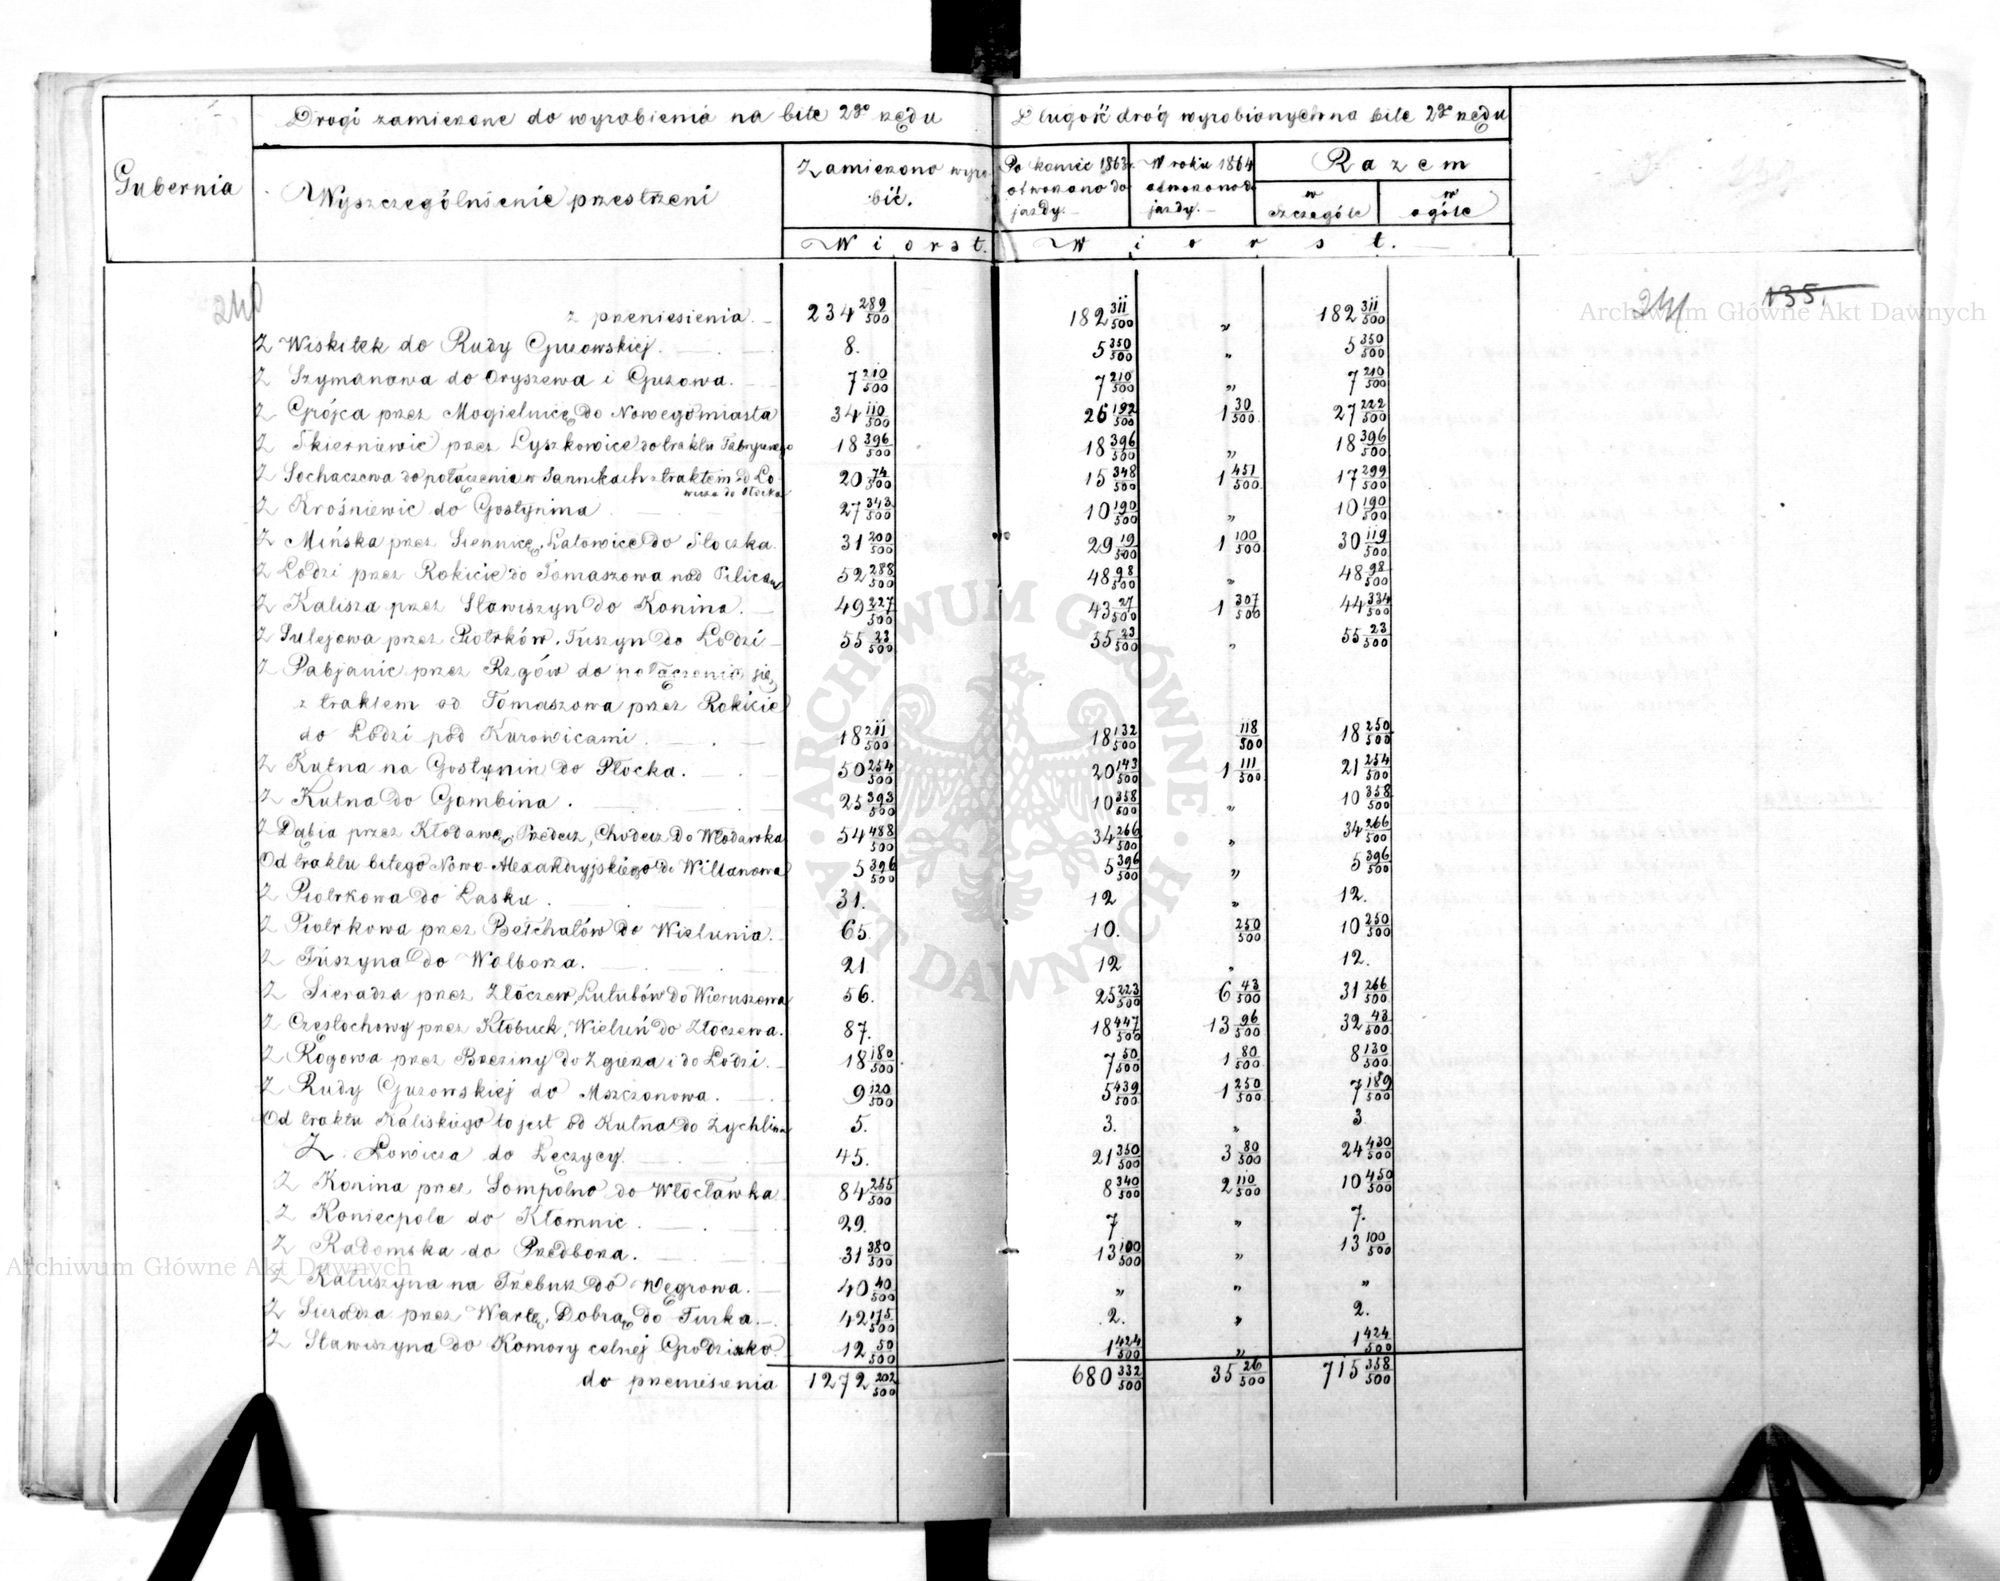 Gubernia
Drogi zamierzone do wyrobienia na bite 2go rzędu
Długość dróg wyrobionych na bite 2go rzędu
Wyszczególnienie przestrzeni
Zamierzono wyrobić.
Po koniec 1863 r. otworzono do jazdy.
W roku 1864 otworzono do jazdy.
Razem
w szczególe
w ogóle
Wiorst.
Wiorst.
240
241
135.
z przeniesienia 234 289/500 182 311/500 „ 182 311/500
Z Wiskitek do Rudy Guzowskiej. 8. 5 350/500 „ 5 350/500
Z Szymanowa do Oryszewa i Guzowa. 7 210/500 7 210/500 „ 7 210/500
Z Grójca przez Mogielnicę do Nowegomiasta 34 110/500 26 192/500 1 30/500 27 222/500
Z Skierniewic przez Łyszkowice do traktu Fabrycznego 18 396/500 18 396/500 „ 18 396/500
Z Sochaczewa do połączenia w Sannikach z traktem od Łowicza do Płocka 20 74/500 15 348/500 1 451/500 17 299/500
Z Krośniewic do Gostynina 27 343/500 10 190/500 „ 10 190/500
Z Mińska przez Siennicę, Latowice do Stoczka. 31 200/500 29 19/500 1 100/500 30 119/500
Z Łodzi przez Rokicie do Tomaszowa nad Pilicą 52 288/500 48 98/500 „ 48 98/500
Z Kalisza przez Stawiszyn do Konina. 49 227/500 43 27/500 1 307/500 44 334/500
Z Sulejowa przez Piotrków, Tuszyn do Łodzi 55 23/500 55 23/500 „ 55 23/500
Z Pabjanic przez Rzgów do połączenia się
z traktem od Tomaszowa przez Rokicie
do Łodzi pod Kurowicami 18 211/500 18 132/500 118/500 18 250/500
Z Kutna na Gostynin do Płocka. 50 254/500 20 143/500 1 111/500 21 254/500
Z Kutna do Gombina. 25 393/500 10 358/500 „ 10 358/500
Z Dąbia przez Kłodawę, Przedecz, Chodecz do Włocławka 54 488/500 34 266/500 „ 34 266/500
Od traktu bitego Nowo-Alexandryjskiego do Willanowa 5 396/500 5 396/500 „ 5 396/500
Z Piotrkowa do Łasku. 31. 12 „ 12.
Z Piotrkowa przez Bełchatów do Wielunia. 65. 10. 250/500 10 250/500
Z Tuszyna do Wolborza. 21 12 „ 12.
Z Sieradza przez Złoczew, Lututów do Wieruszowa 56. 25 223/500 6 43/500 31 266/500
Z Częstochowy przez Kłobuck, Wieluń do Złoczewa. 87. 18 447/500 13 96/500 32 43/500
Z Rogowa przez Brzeziny do Zgierza i do Łodzi. 18 180/500 7 50/500 1 80/500 8 130/500
Z Rudy Guzowskiej do Mszczonowa. 9 120/500 5 439/500 1 250/500 7 189/500
Od traktu Kaliskiego to jest od Kutna do Żychlina 5. 3. „ 3
Z Łowicza do Łęczycy. 45. 21 350/500 3 80/500 24 430/500
Z Konina przez Sompolno do Włocławka 84 255/500 8 340/500 2 110/500 10 450/500
Z Koniecpola do Kłomnic 29. 7 „ 7.
Z Radomska do Przedborza. 31 380/500 13 100/500 „ 13 100/500
Z Kałuszyna na Grębków do Węgrowa. 40 40/500 „ „ „
Z Sieradza przez Wartę, Dobrą do Turka. 42 175/500 2. „ 2.
Z Stawiszyna do Komory celnej Grodzisko. 12 50/500 1 424/500 „ 1 424/500
do przeniesienia 1272 202/500 680 332/500 35 26/500 715 358/500
Archiwum Główne Akt Dawnych
Archiwum Główne Akt Dawnych
ARCHIWUM GŁÓWNE · AKT DAWNYCH ·